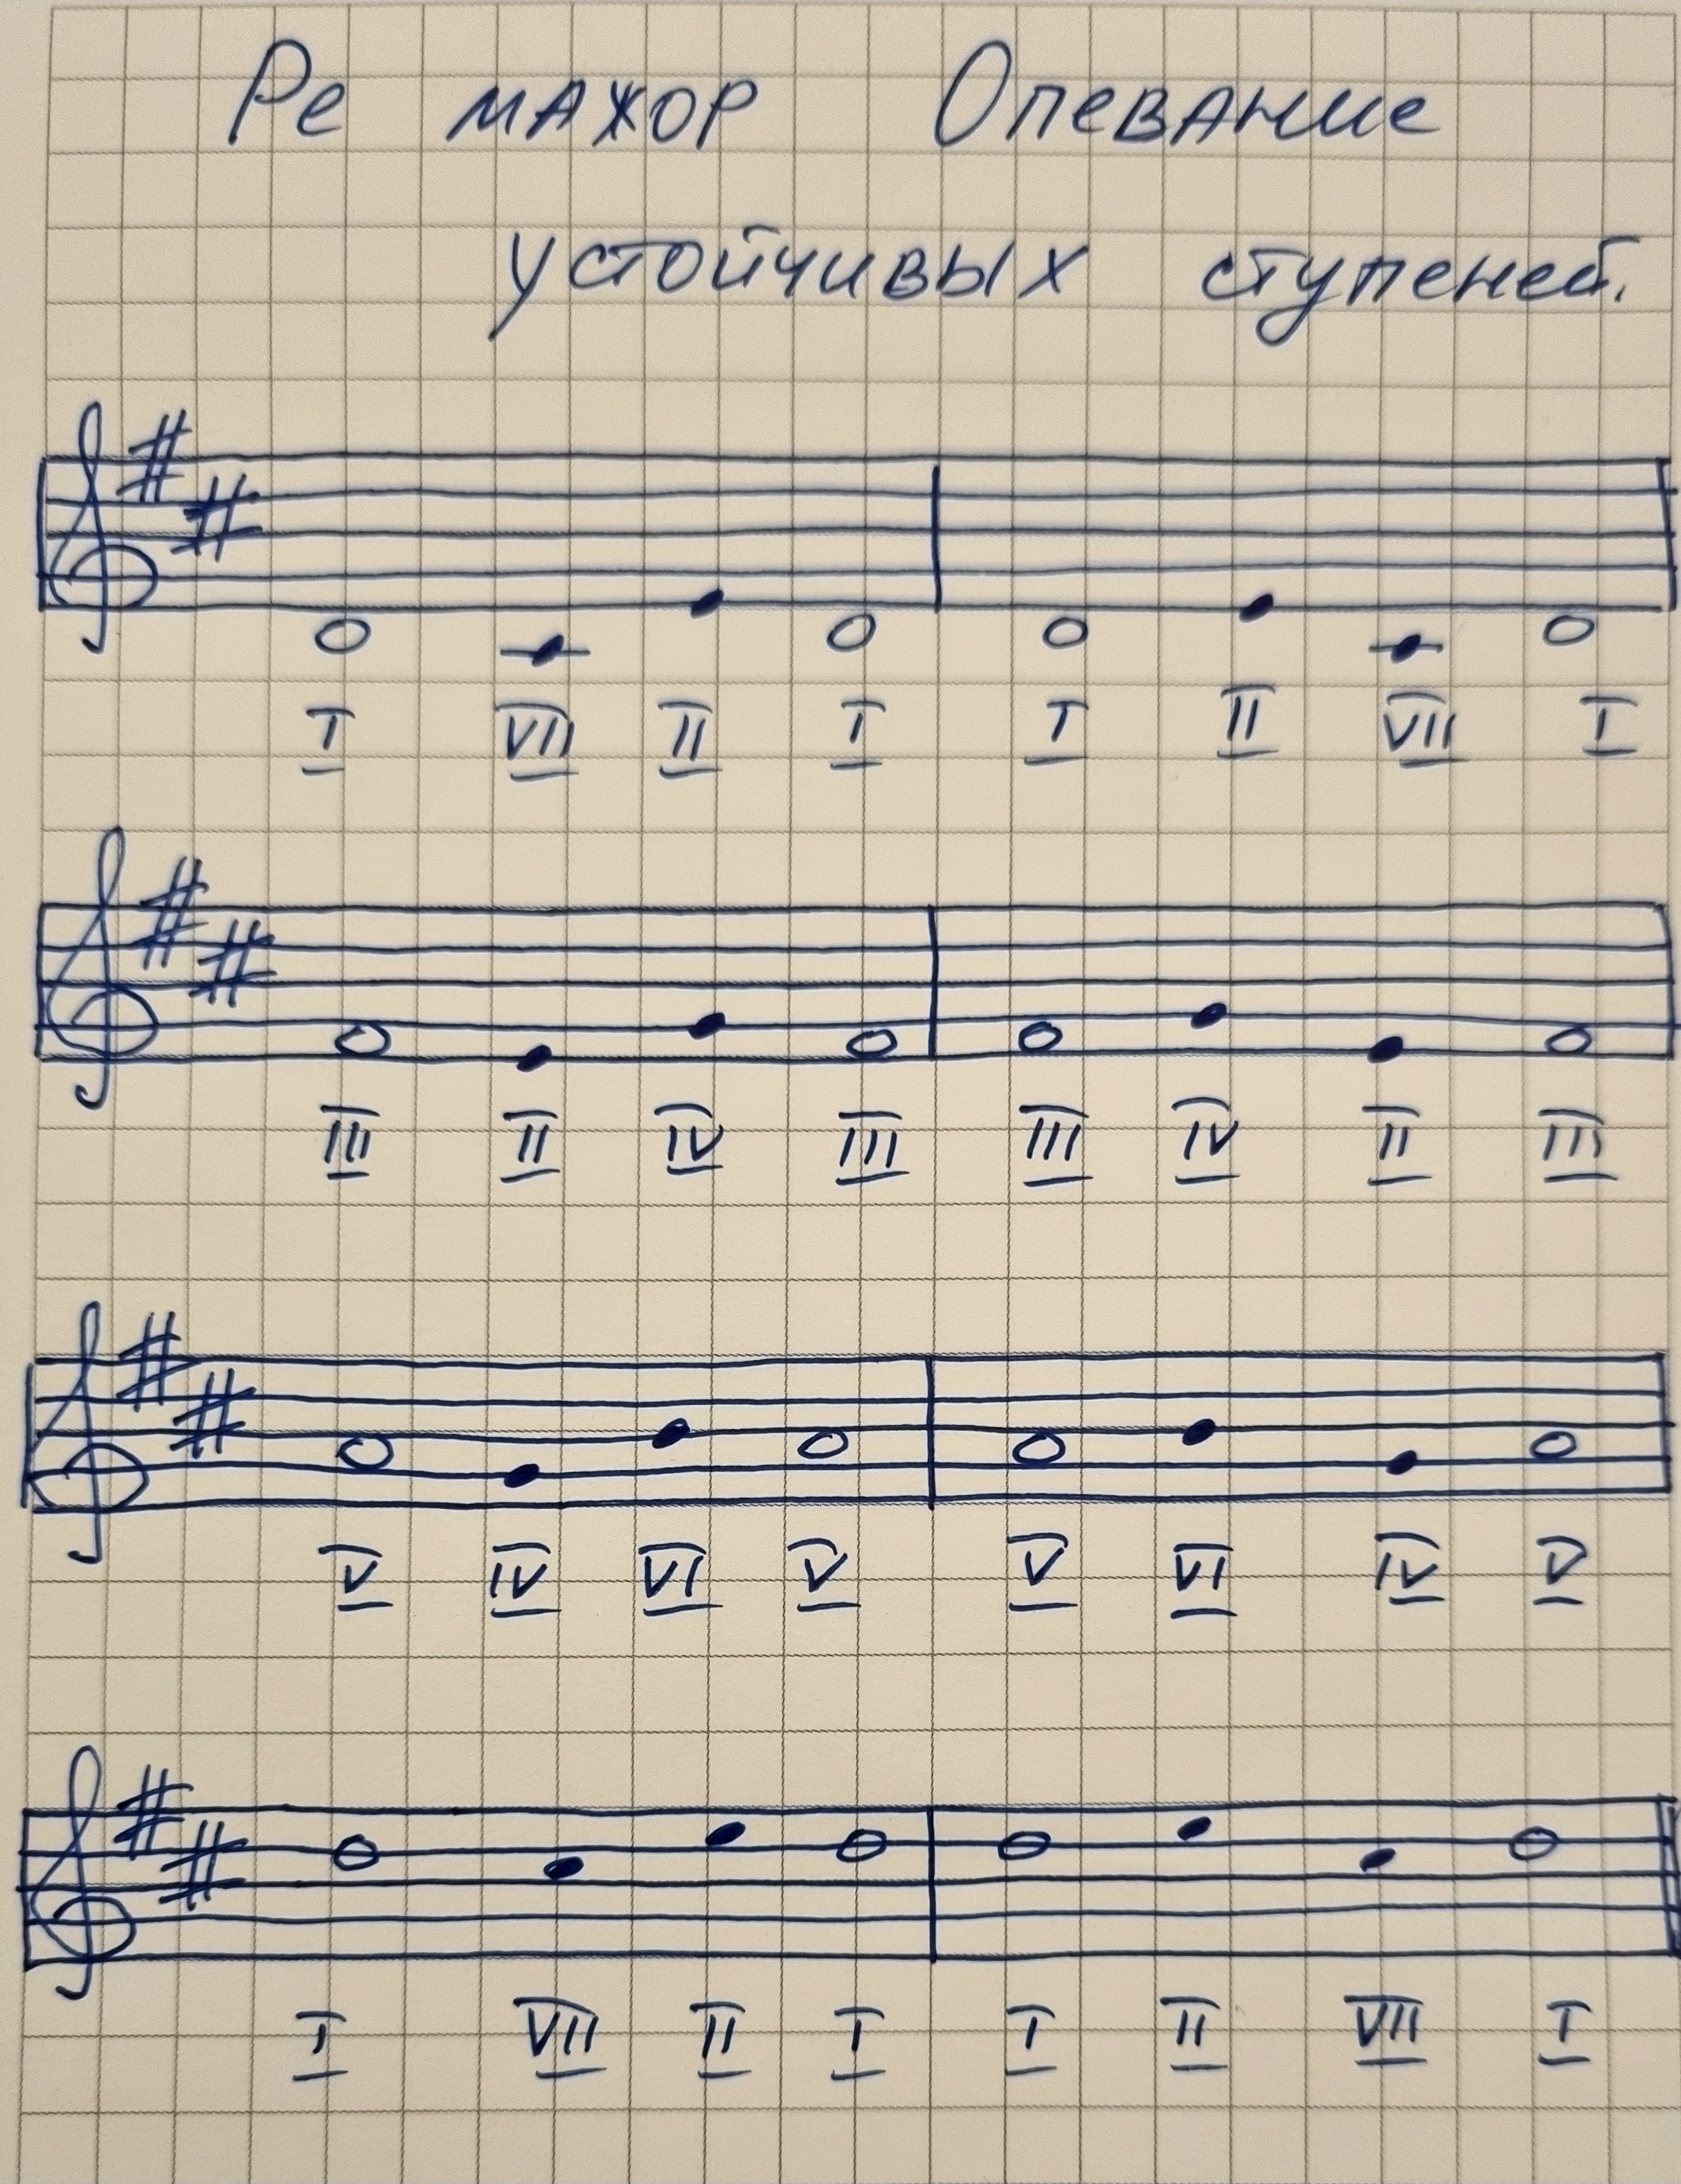 Ре мажор Опевание
устойчивых ступеней.
I VII II I I II VII I
III II IV III III IV II III
V IV VI V V VI IV V
I VII II I I II VII I